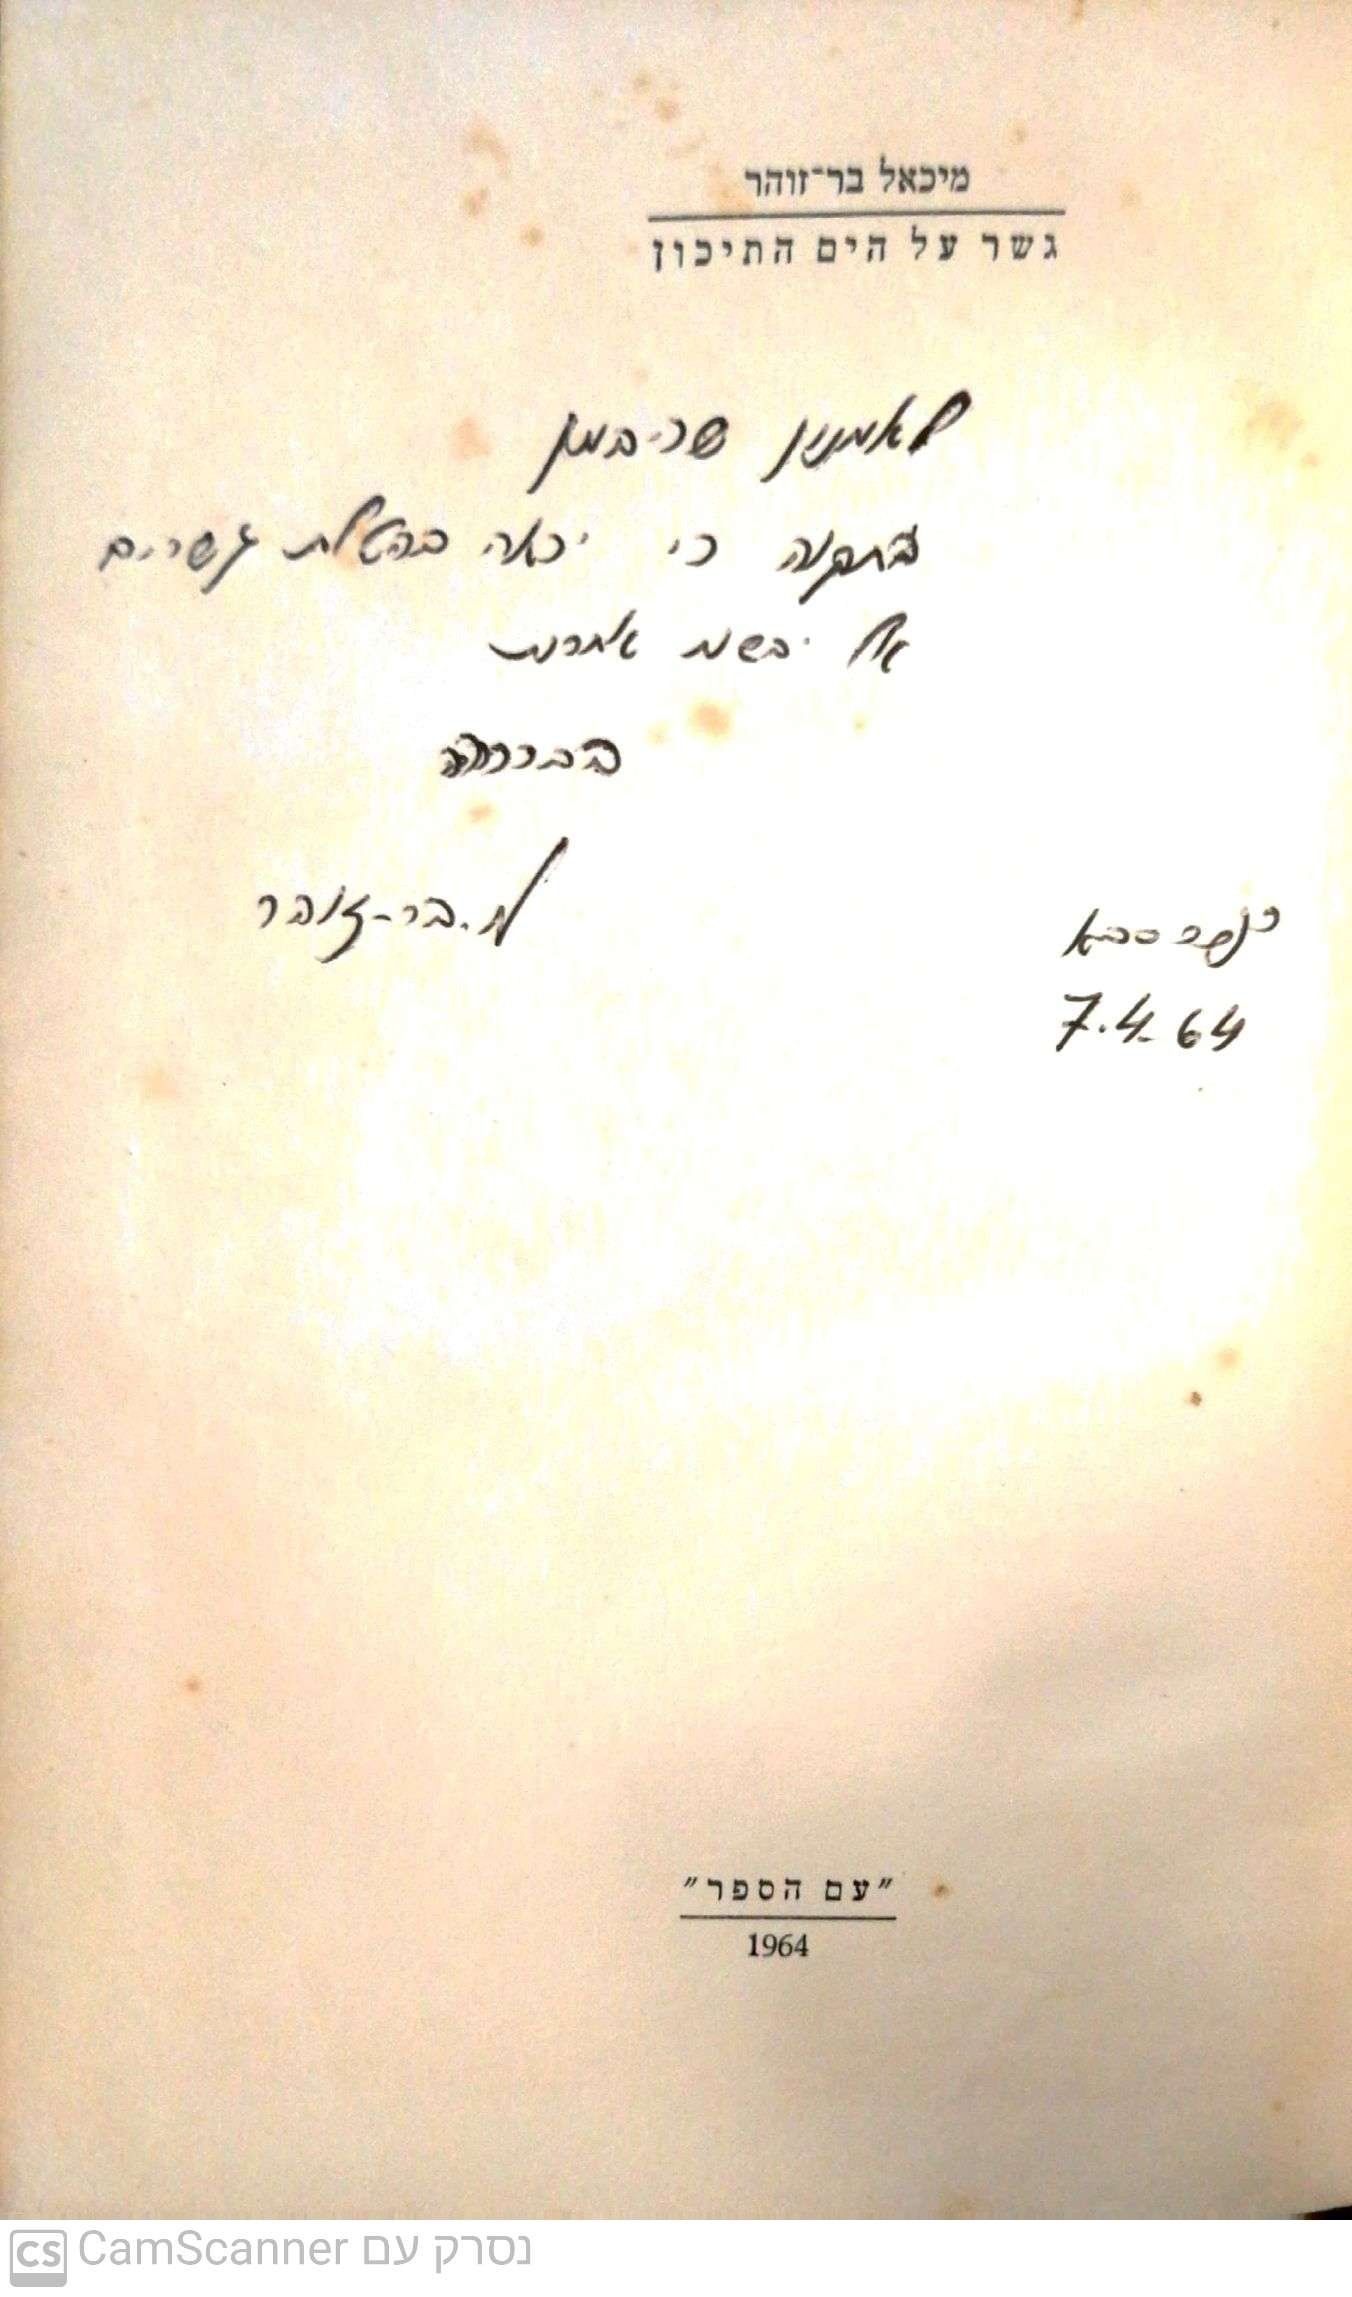 מיכאל בר־זוהר
גשר על הים התיכון
לאמנון שריבמן
בתקוה כי יראה בהטלת גשרים
אל יבשות אחרות
בברכה
מ. בר-זוהר
כפר סבא
7.4.64
"עם הספר"
1964
CS CamScanner נסרק עם